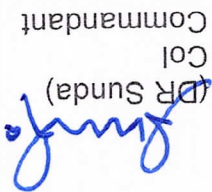 (DR Sunda)
Col
Commandant